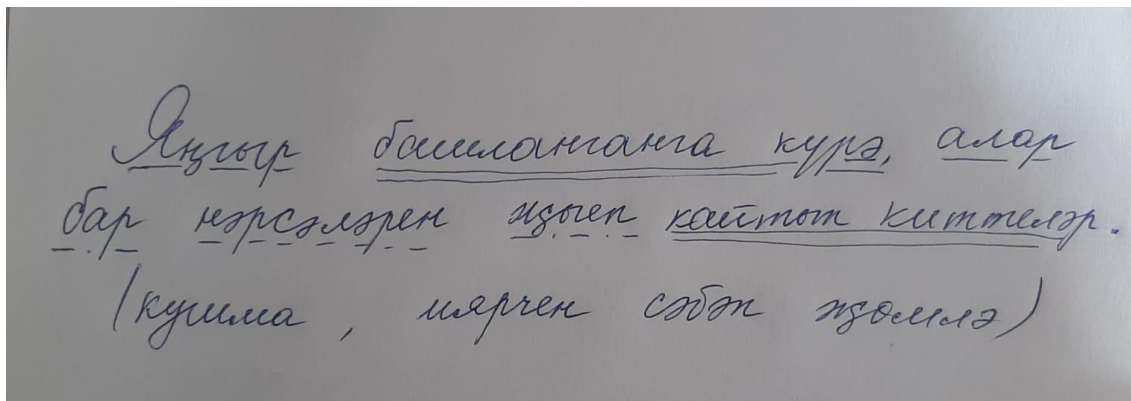 Яңгыр башланганга күрә, алар
бар нәрсәләрен җыеп кайтып киттеләр.
(кушма, иярчен сәбәп җөмлә)